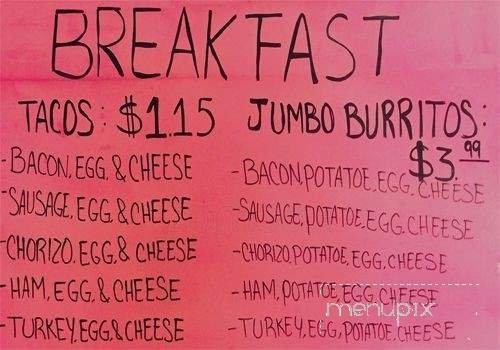 BREAKFAST
TACOS: $1.15
-BACON, EGG, & CHEESE
-SAUSAGE, EGG, & CHEESE
-CHORIZO, EGG, & CHEESE
-HAM, EGG, & CHEESE
-TURKEY, EGG, & CHEESE
JUMBO BURRITOS:
$3.99
-BACON, POTATOE, EGG, CHEESE
-SAUSAGE, POTATOE, EGG, CHEESE
-CHORIZO, POTATOE, EGG, CHEESE
-HAM, POTATOE, EGG, CHEESE
-TURKEY, EGG, POTATOE, CHEESE
menupix